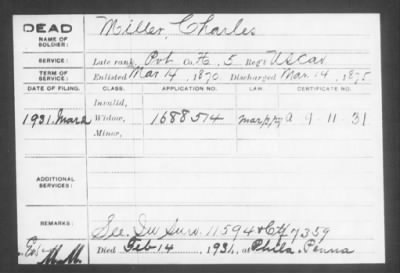 DEAD
NAME OF SOLDIER:
Miller, Charles
SERVICE:
Late rank, Pvt Co. H, 5 Reg't US Cav
TERM OF SERVICE:
Enlisted Mar 14, 1870, Discharged Mar. 14, 1875
DATE OF FILING. CLASS. APPLICATION NO. LAW. CERTIFICATE NO.
Invalid,
1931. Mar Widow, 1688574 A 9-11-31
Minor,
ADDITIONAL SERVICES:
REMARKS:
See Ind Surv. 11594 Ctf 7359
Died Feb 14, 1931, at Phila. Penna